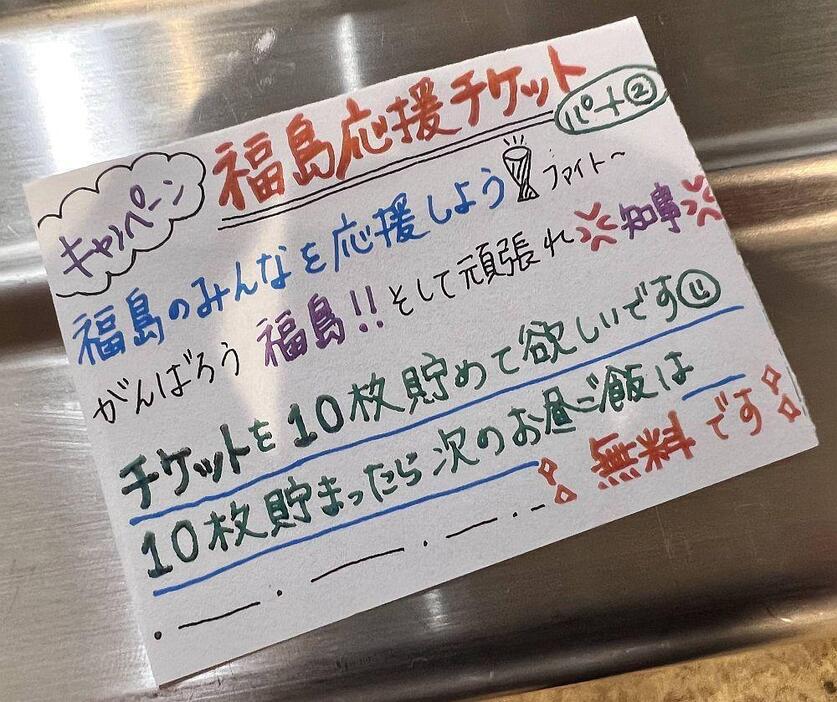 キャンペーン
福島応援チケット
パート②
福島のみんなを応援しよう ファイト〜
がんばろう 福島!! そして頑張れ 知事
チケットを10枚貯めて欲しいです
10枚貯まったら次のお昼ご飯は
無料です